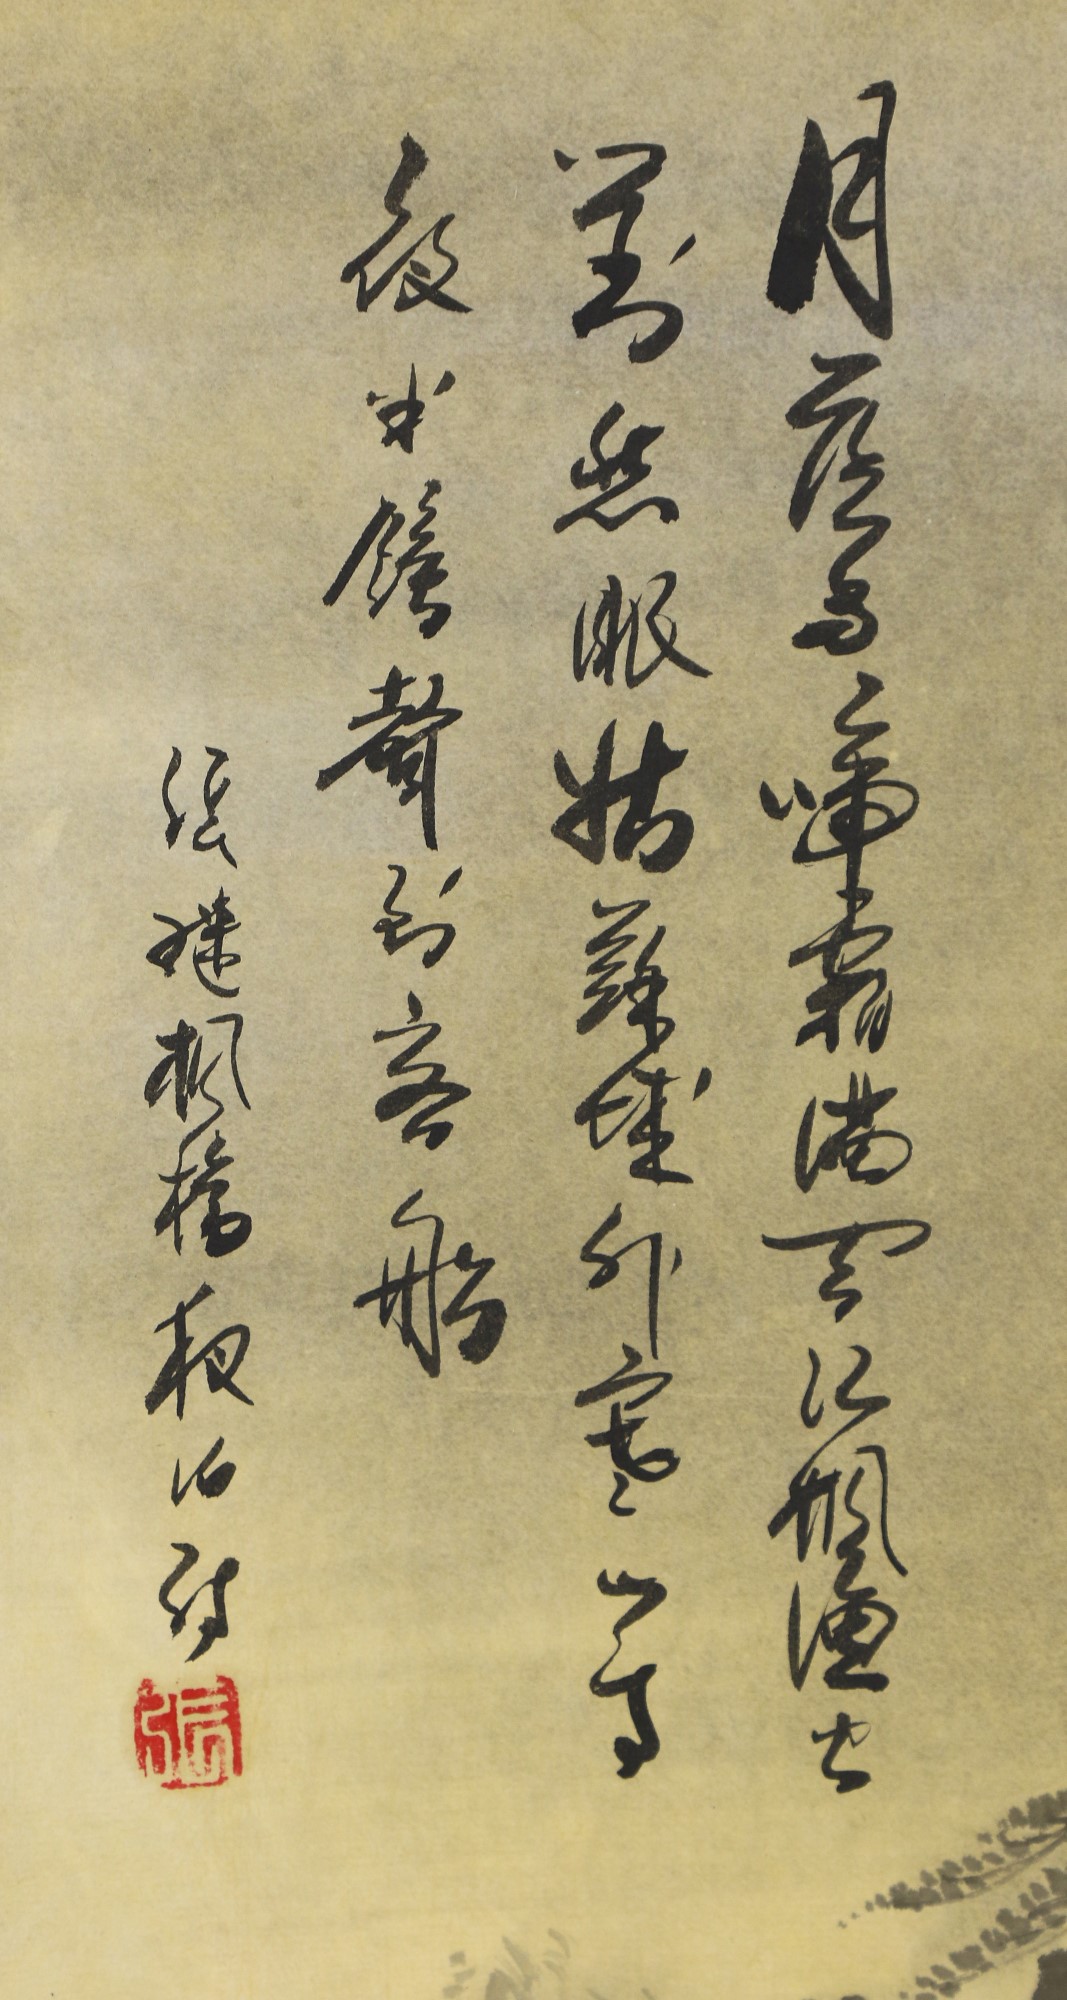 月落烏啼霜滿天江楓漁火
對愁眠姑蘇城外寒山寺
夜半鐘聲到客船
張繼楓橋夜泊詩
張